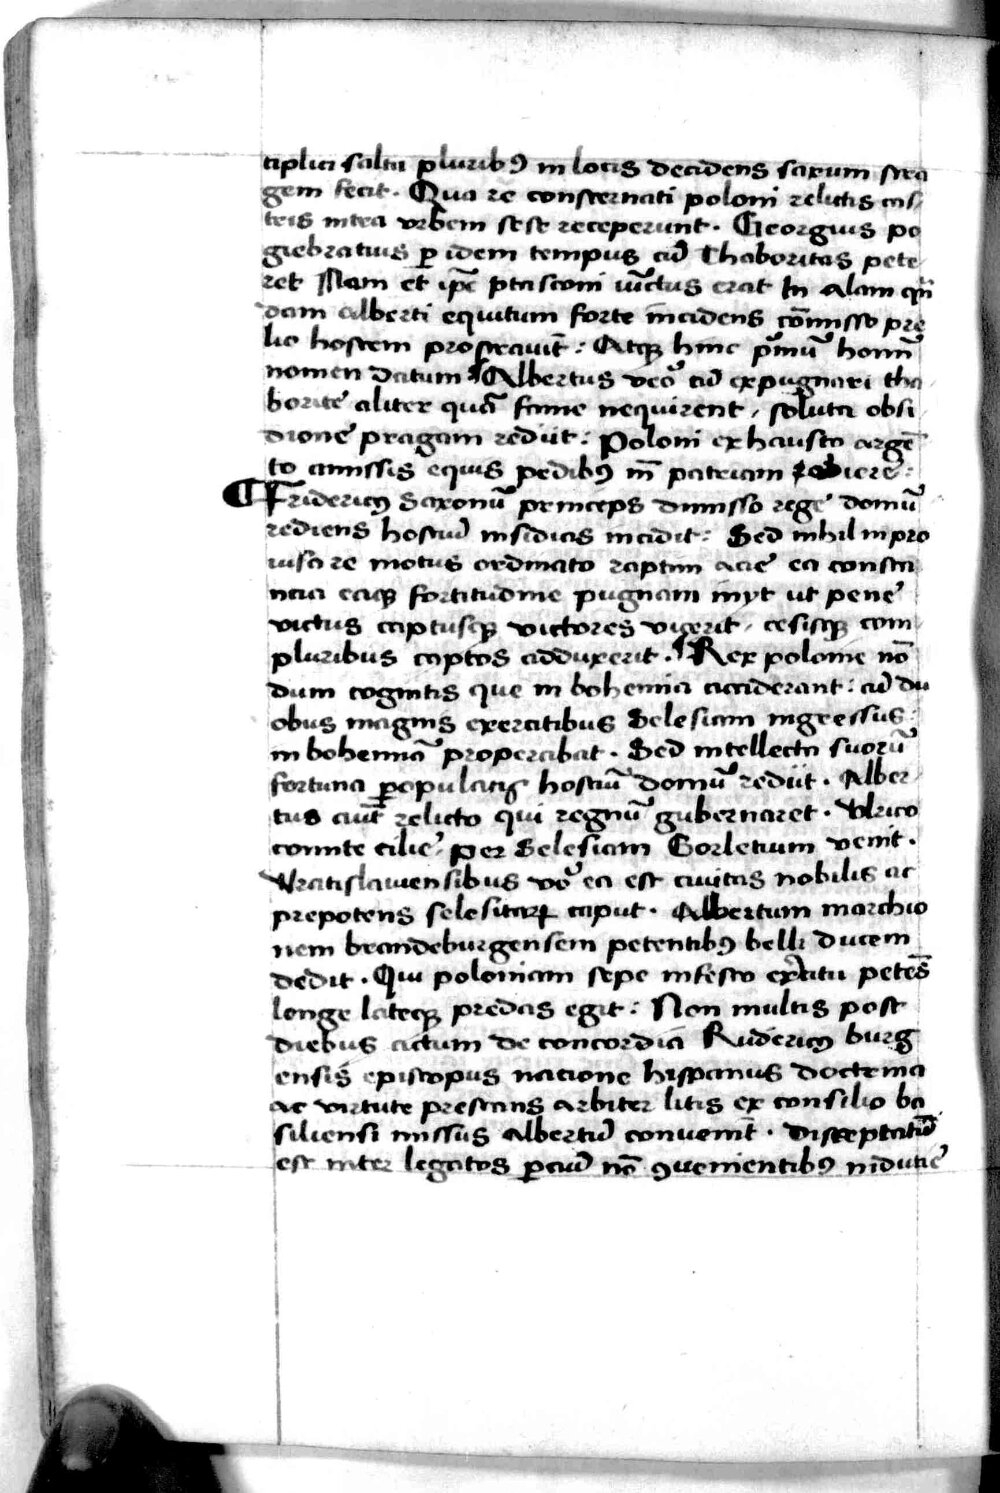 tiplici saltu pluribꝰ in locis decidens saxum stra
gem fecit. Qua re consternati poloni relictis cas/
tris intra vrbem sese receperunt. Georgius po
giebratius ꝑ idem tempus cū Thaboritas pete/
ret Nam et ip̄e ptasconi iūctus erat In alam quā
dam alberti equitum forte incidens cōmisso pre
lio hostem prostrauit: Atqꝫ hinc pͥmū homī
nomen datum Albertus veo᷒ cū expugnari tha
borite aliter quā fame nequirent, soluta obsi
dione pragam redijt: Poloni exhausto argē
to amissis equis pedibꝰ in patriam rediere:
Fridericꝰ Saxonū princeps dimisso rege domū
rediens hostiū insidias incidit: Sed nihil inpro
uisa re motus ordinato raptim acie ea consta
ncia eaqꝫ fortitudine pugnam inyt ut pene
victus captusqꝫ victores vicerit, cesisqꝫ com/
pluribus captos adduxerit. Rex polonie nō
dum cognitis que in bohemia acciderant: cū du
obus magnis exercitibus Selesiam ingressus:
in bohemiā properabat. Sed intellecta suorū
fortuna ꝑpopulatis hostiū domū redijt. Alber/
tus aut̄ relicto qui regnū gubernaret. Vlrico
comite cilie, per Selesiam Gorletium venit.
Wratislauiensibus vo᷒ ea est ciuitas nobilis ac
prepotens selesitaꝝ caput. Albertum marchio
nem brandeburgensem petentibꝰ belli ducem
dedit. Qui poloniam sepe infesto exercitu petēs
longe lateqꝫ predas egit: Non multis post
diebus actum de concordia Rudericꝰ burg
ensis episcopus nacione hispanus doctrina
ac virtute prestans arbiter litis ex consilio ba
siliensi missus Albertū conuenit. Disceptatū
est inter legatos ꝑ ciuū nō ꝯuenientibꝰ inducie